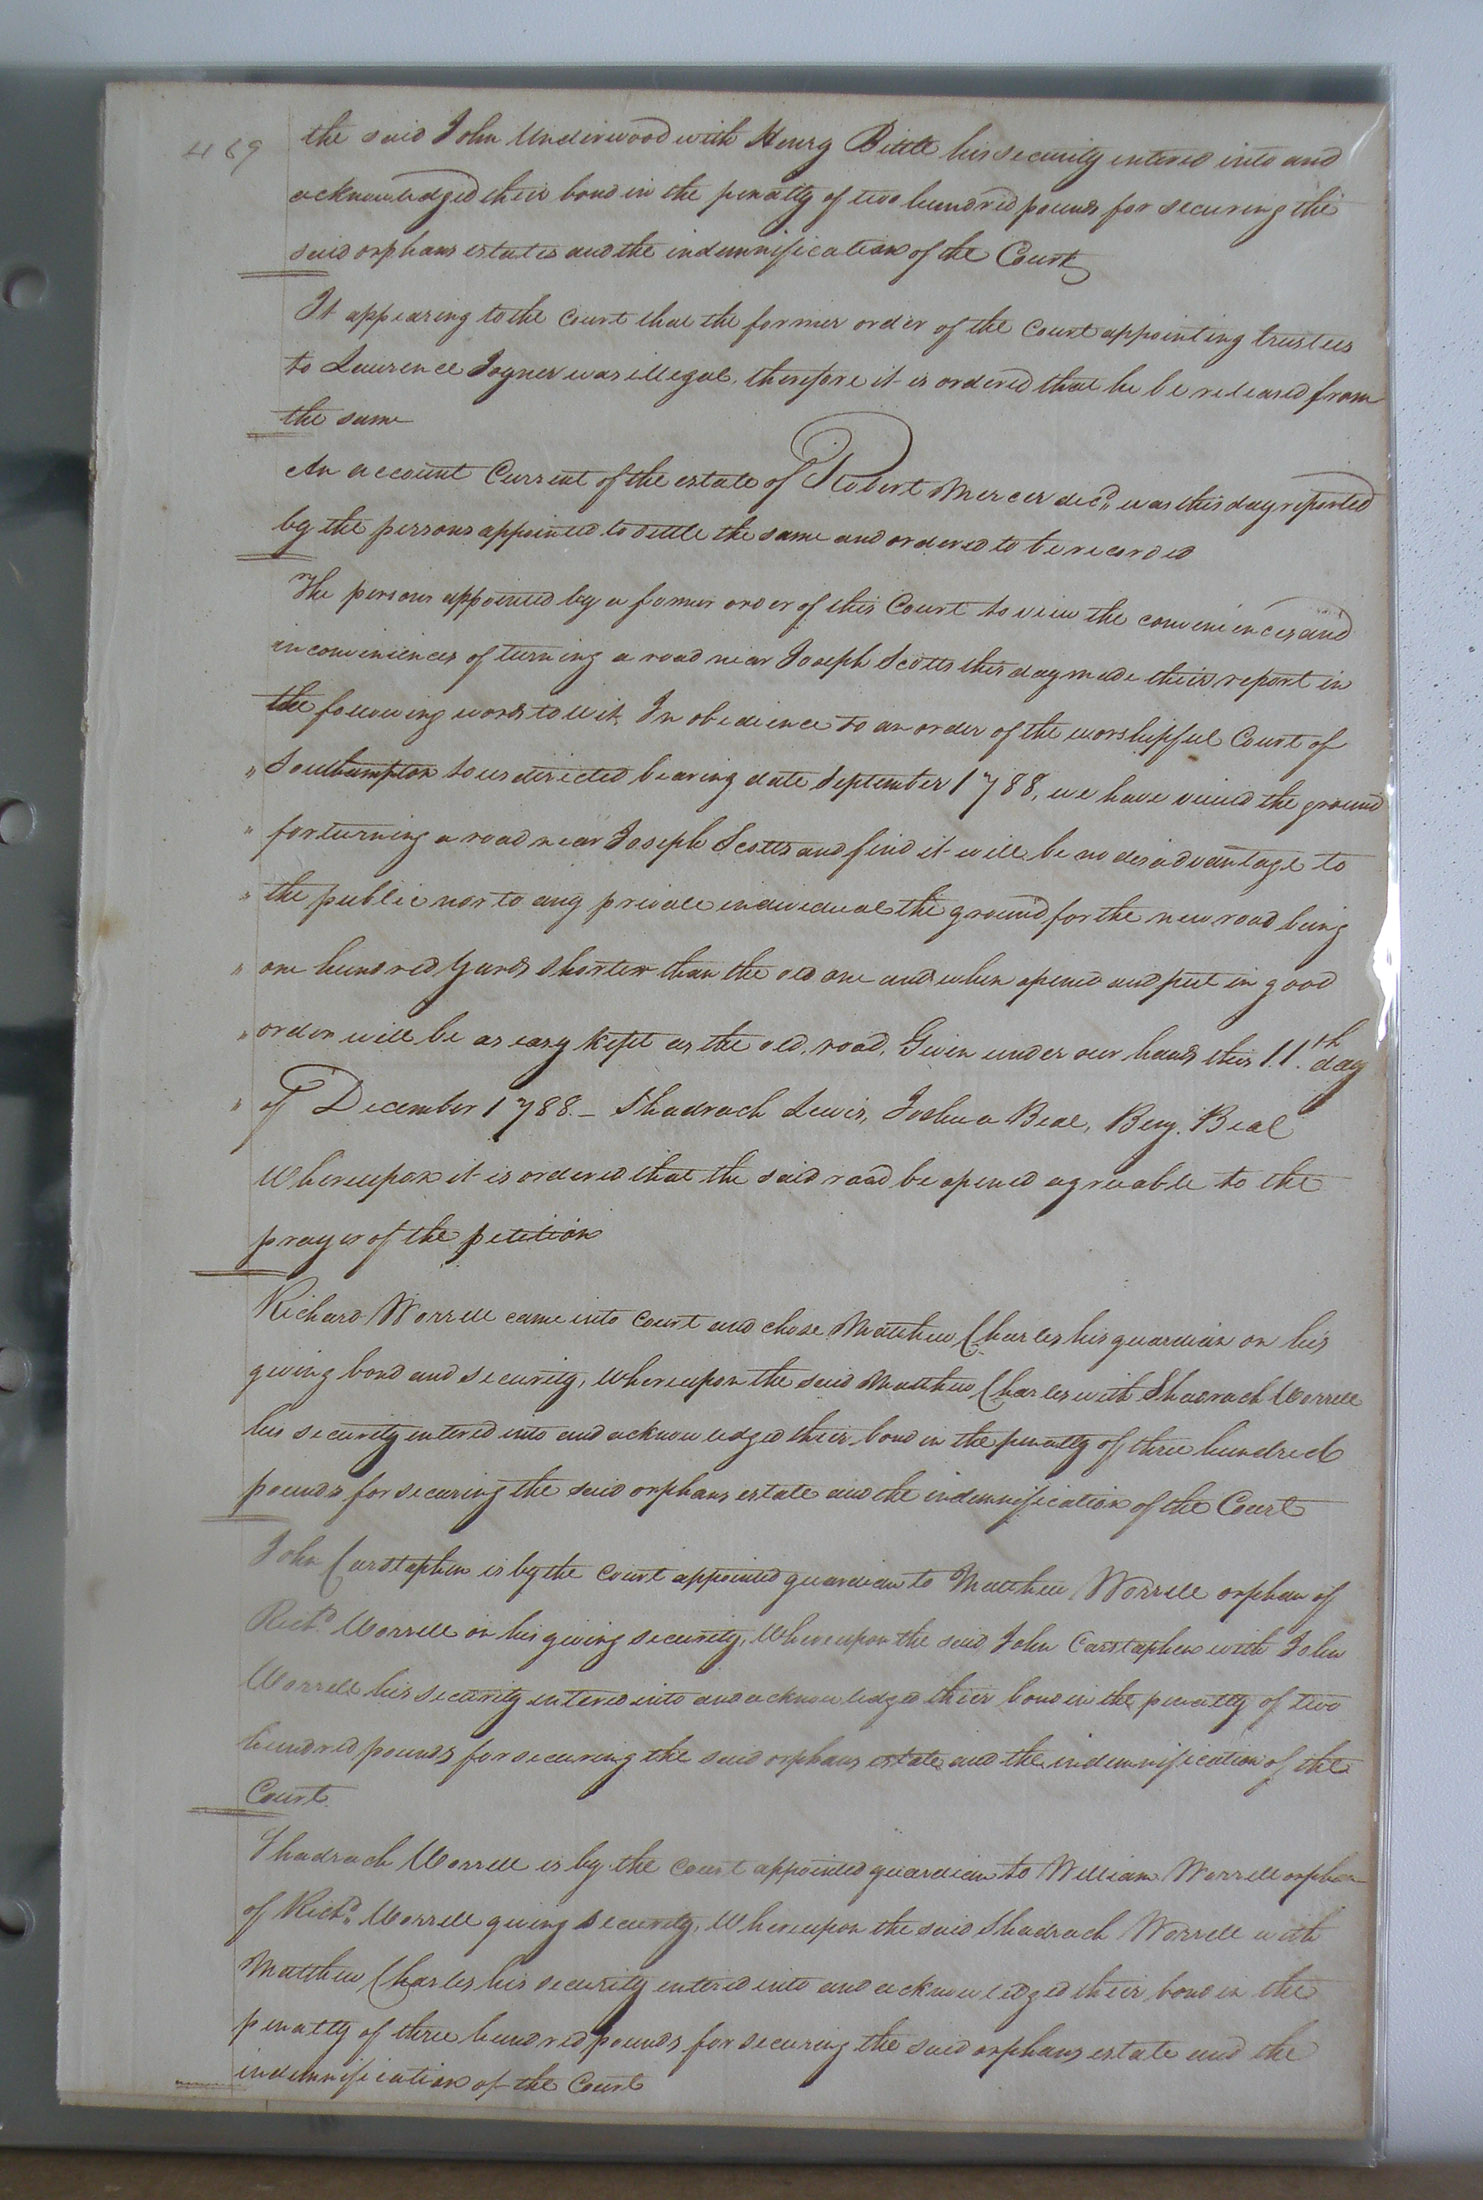 469
the said John Underwood with Henry Bittle his security entered into and
acknowledged their bond in the penalty of two hundred pounds for securing the
said orphans estates and the indemnification of the Court
It appearing to the Court that the former order of the Court appointing trustees
to Laurence Joyner was illegal, therefore it is ordered that he be released from
the same
An account Current of the estate of Robert Mercer decd. was this day reported
by the persons appointed to settle the same and ordered to be recorded
The persons appointed by a former order of this Court to view the conveniences and
inconveniences of turning a road near Joseph Scotts this day made their report in
the following words to wit, In obedience to an order of the worshipful Court of
" Southampton to us directed bearing date September 1788, we have viewed the ground
" for turning a road near Joseph Scotts and find it will be no disadvantage to
" the public nor to any private individual the ground for the new road being
" one hundred yards shorter than the old one and when opened and put in good
" order will be as easy kept as the old, road, Given under our hands this 11th. day
" of December 1788 - Shadrach Lewis, Joshua Beal, Benj. Beal
Whereupon it is ordered that the said road be opened agreeable to the
prayer of the petition
Richard Worrell came into Court and chose Matthew Charles his guardian on his
giving bond and security, Whereupon the said Matthew Charles with Shadrach Worrell
his security entered into and acknowledged their bond in the penalty of three hundred
pounds for securing the said orphans estate and the indemnification of the Court
John Carstaphen is by the Court appointed guardian to Matthew Worrell orphan of
Richd. Worrell on his giving security, Whereupon the said John Carstaphen with John
Worrell his security entered into and acknowledged their bond in the penalty of two
hundred pounds for securing the said orphans estate and the indemnification of the
Court
Shadrach Worrell is by the Court appointed guardian to William Worrell orphan
of Richd. Worrell giving security, Whereupon the said Shadrach Worrell with
Matthew Charles his security entered into and acknowledged their bond in the
penalty of three hundred pounds for securing the said orphans estate and the
indemnification of the Court